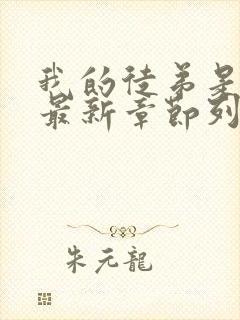 我的徒弟是
最新章節列
朱元龍